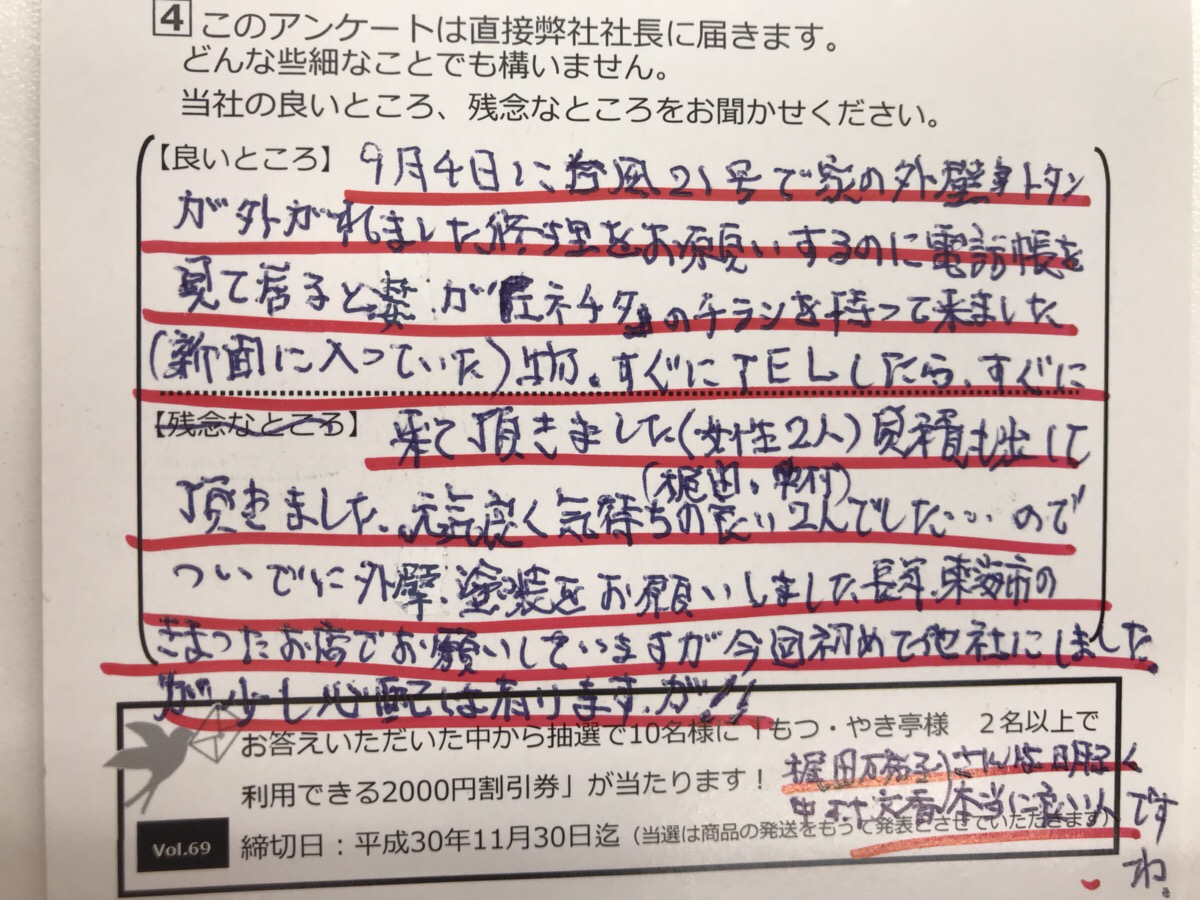 4 このアンケートは直接弊社社長に届きます。
どんな些細なことでも構いません。
当社の良いところ、残念なところをお聞かせください。
【良いところ】 9月4日に台風21号で家の外壁トタン
が外がれました修理をお願いするのに電話帳を
見て居ると妻が匠ネチタのチラシを持って来ました
(新聞に入っていた) すぐにTELしたら、すぐに
【残念なところ】 来て頂きました(女性2人)見積も出して
(梶田、中村)
頂きました、元気良く気待ちの良い2人でした…ので
ついでに外壁、塗装をお願いしました長年、東海市の
きまったお店でお願いしていますが今回初めて他社にしました。
が少し心配は有ります、が!!
お答えいただいた中から抽選で10名様に「もつ・やき亭様 2名以上で
利用できる2000円割引券」が当たります!
梶田 さんは明るく
中村文香 本当に良い人です
ね。
Vol.69 締切日:平成30年11月30日迄(当選は商品の発送をもって発表とさせていただきます)